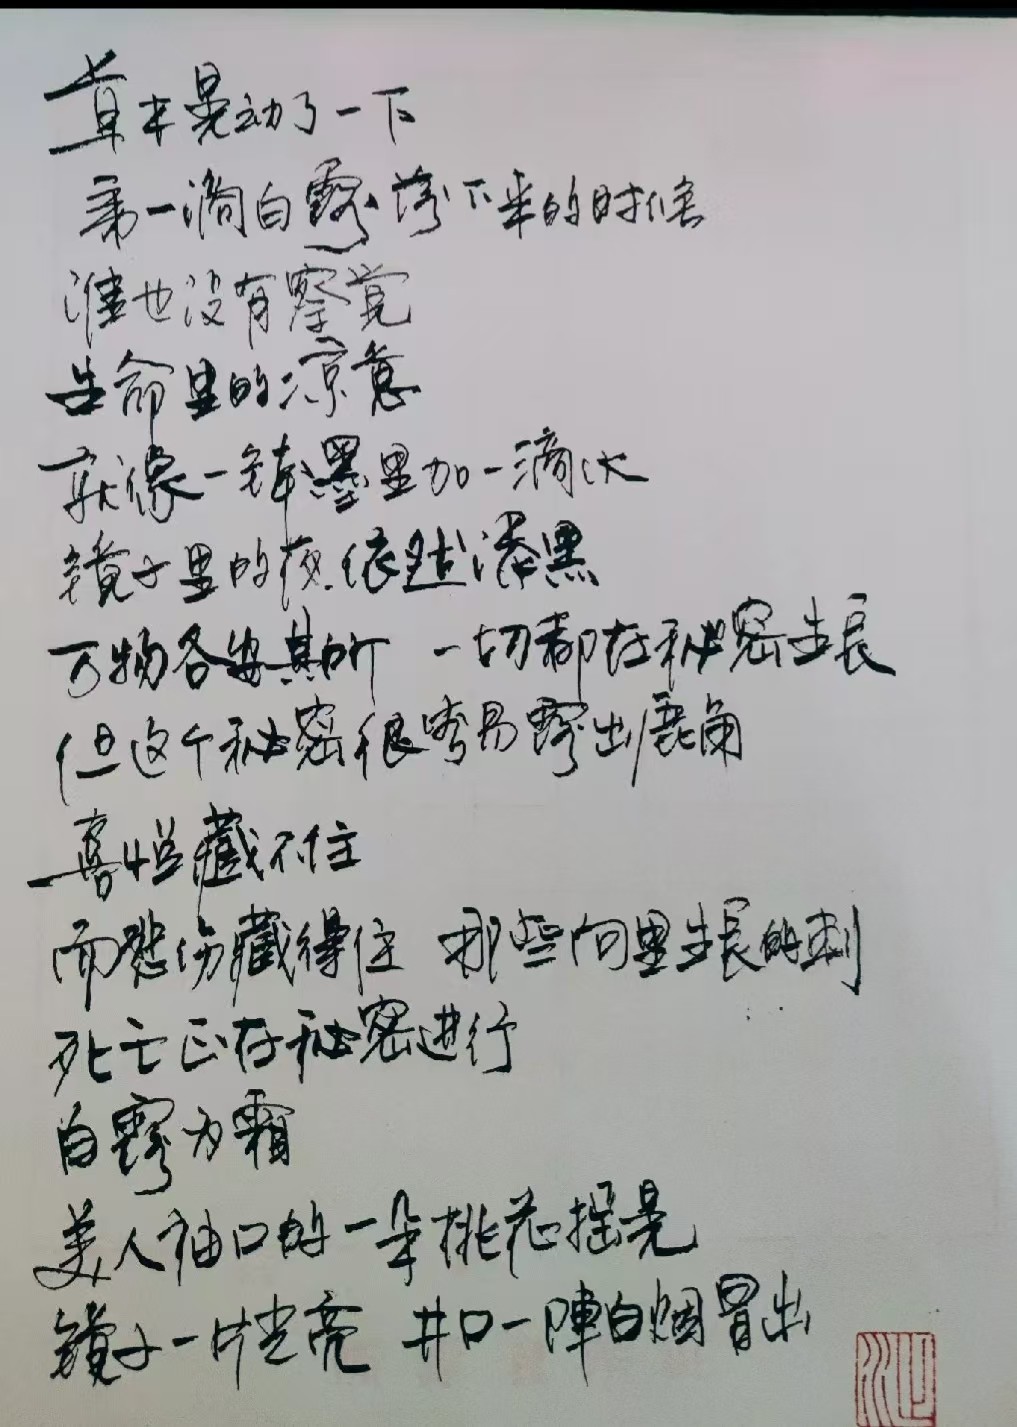 草木晃动了一下
第一滴白露落下来的时候
谁也没有察觉
生命里的凉意
就像一钵墨里加一滴水
镜子里的夜依然漆黑
万物各安其所 一切都在秘密生长
但这个秘密很容易露出鹿角
喜悦藏不住
而悲伤藏得住 那些向里生長的刺
死亡正在秘密进行
白露为霜
美人袖口的一朵桃花摇晃
镜子一片光亮 井口一陣白烟冒出